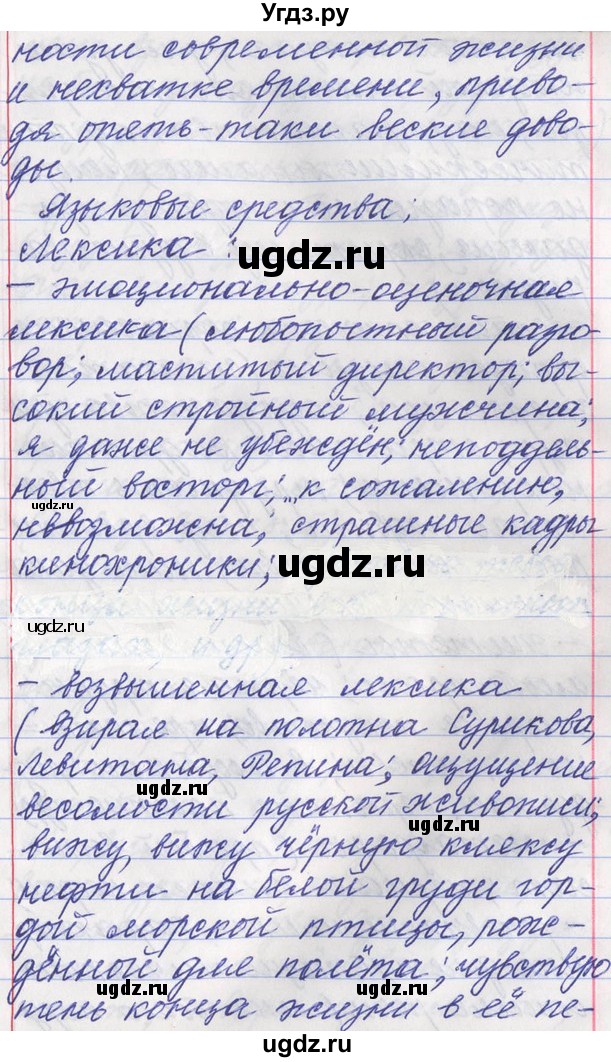 Угдз.ру
ности современной жизни
и нехватке времени, приво-
дя опять-таки веские дово-
ды.
Языковые средства:
Лексика:
ugdz.ru
- эмоционально-оценочная
лексика (любопытный разго-
вор; маститый директор; вы-
сокий стройный мужчина;
я даже не убеждён; неподдель-
ный восторг; к сожалению,
ugdz.ru
невозможна; страшные кадры
кинохроники;
ugdz.ru
ugdz.ru
- возвышенная лексика
(взирая на полотна Сурикова,
Левитана, Репина; ощущение
ugdz.ru
весомости русской живописи;
ugdz.ru
вижу, вижу чёрную кляксу
нефти на белой груди гор-
дой морской птицы, рож-
дённой для полёта; чувствую
ugdz.ru
ugdz.ru
тень конца жизни в её пе-
Угдз.ру